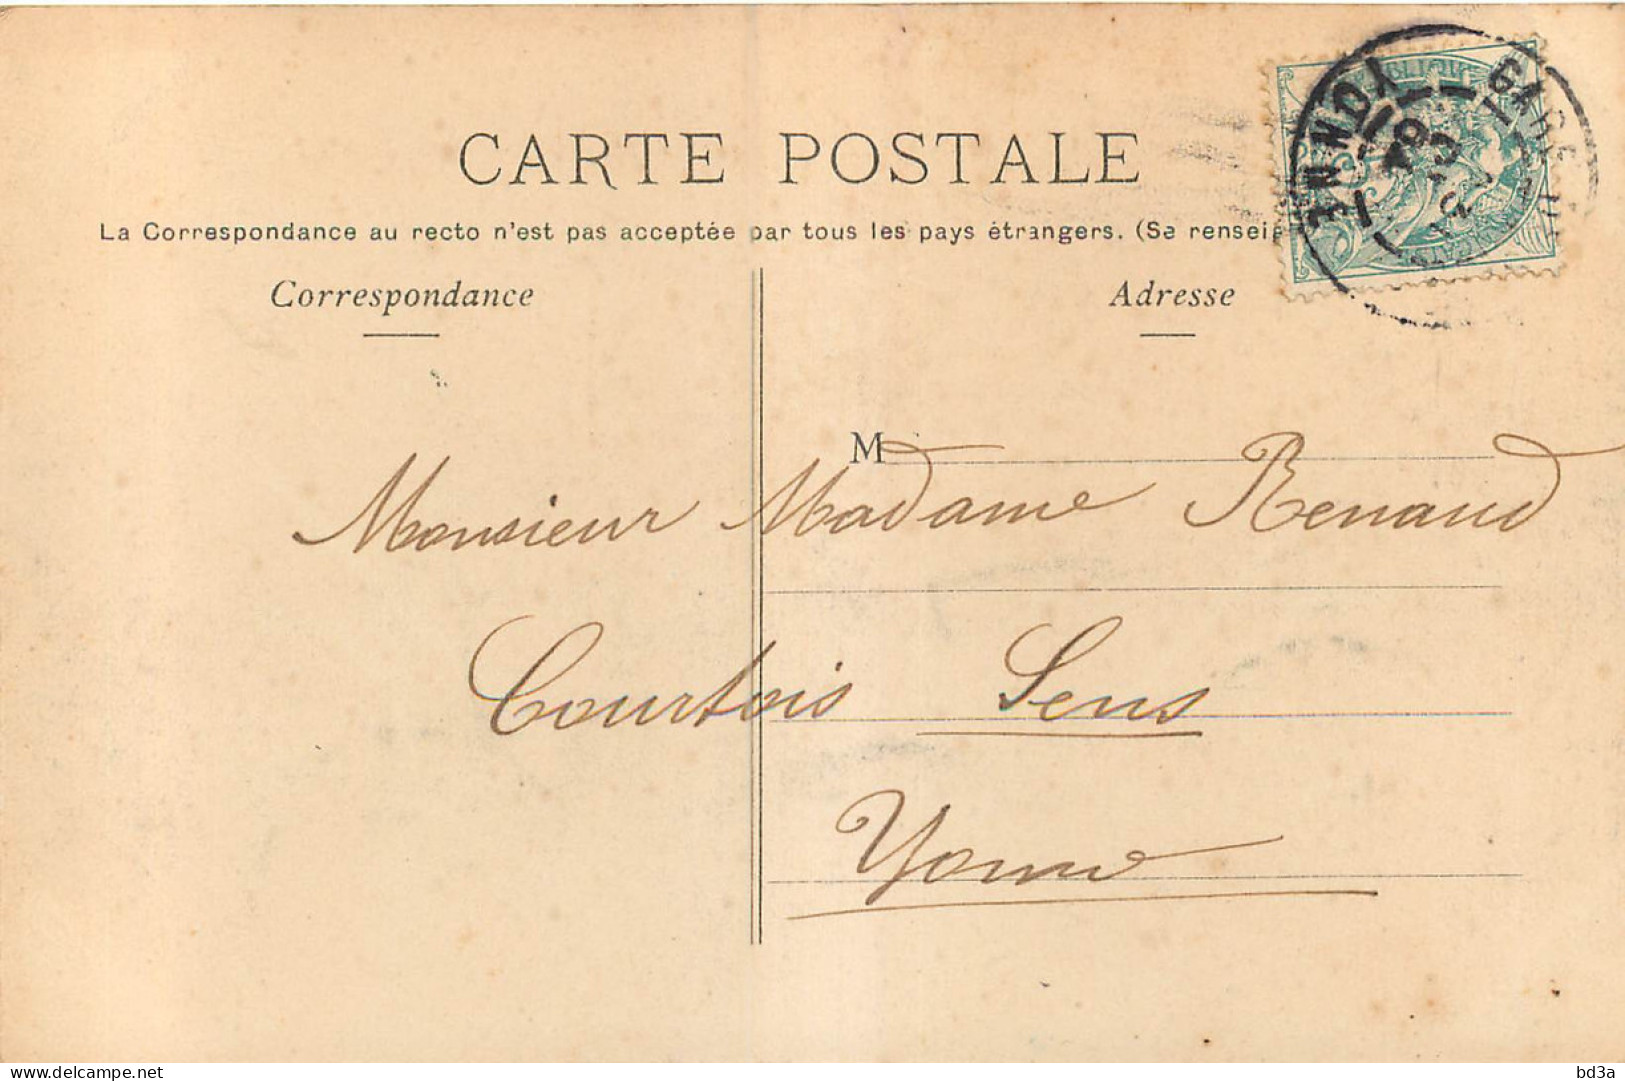 CARTE POSTALE
La Correspondance au recto n'est pas acceptée par tous les pays étrangers. (Se renseig
Correspondance
Adresse
M
Monsieur Madame Renaud
Courtois Sens
Yonne
YONNE
GARE
delcampe.net
bd3a